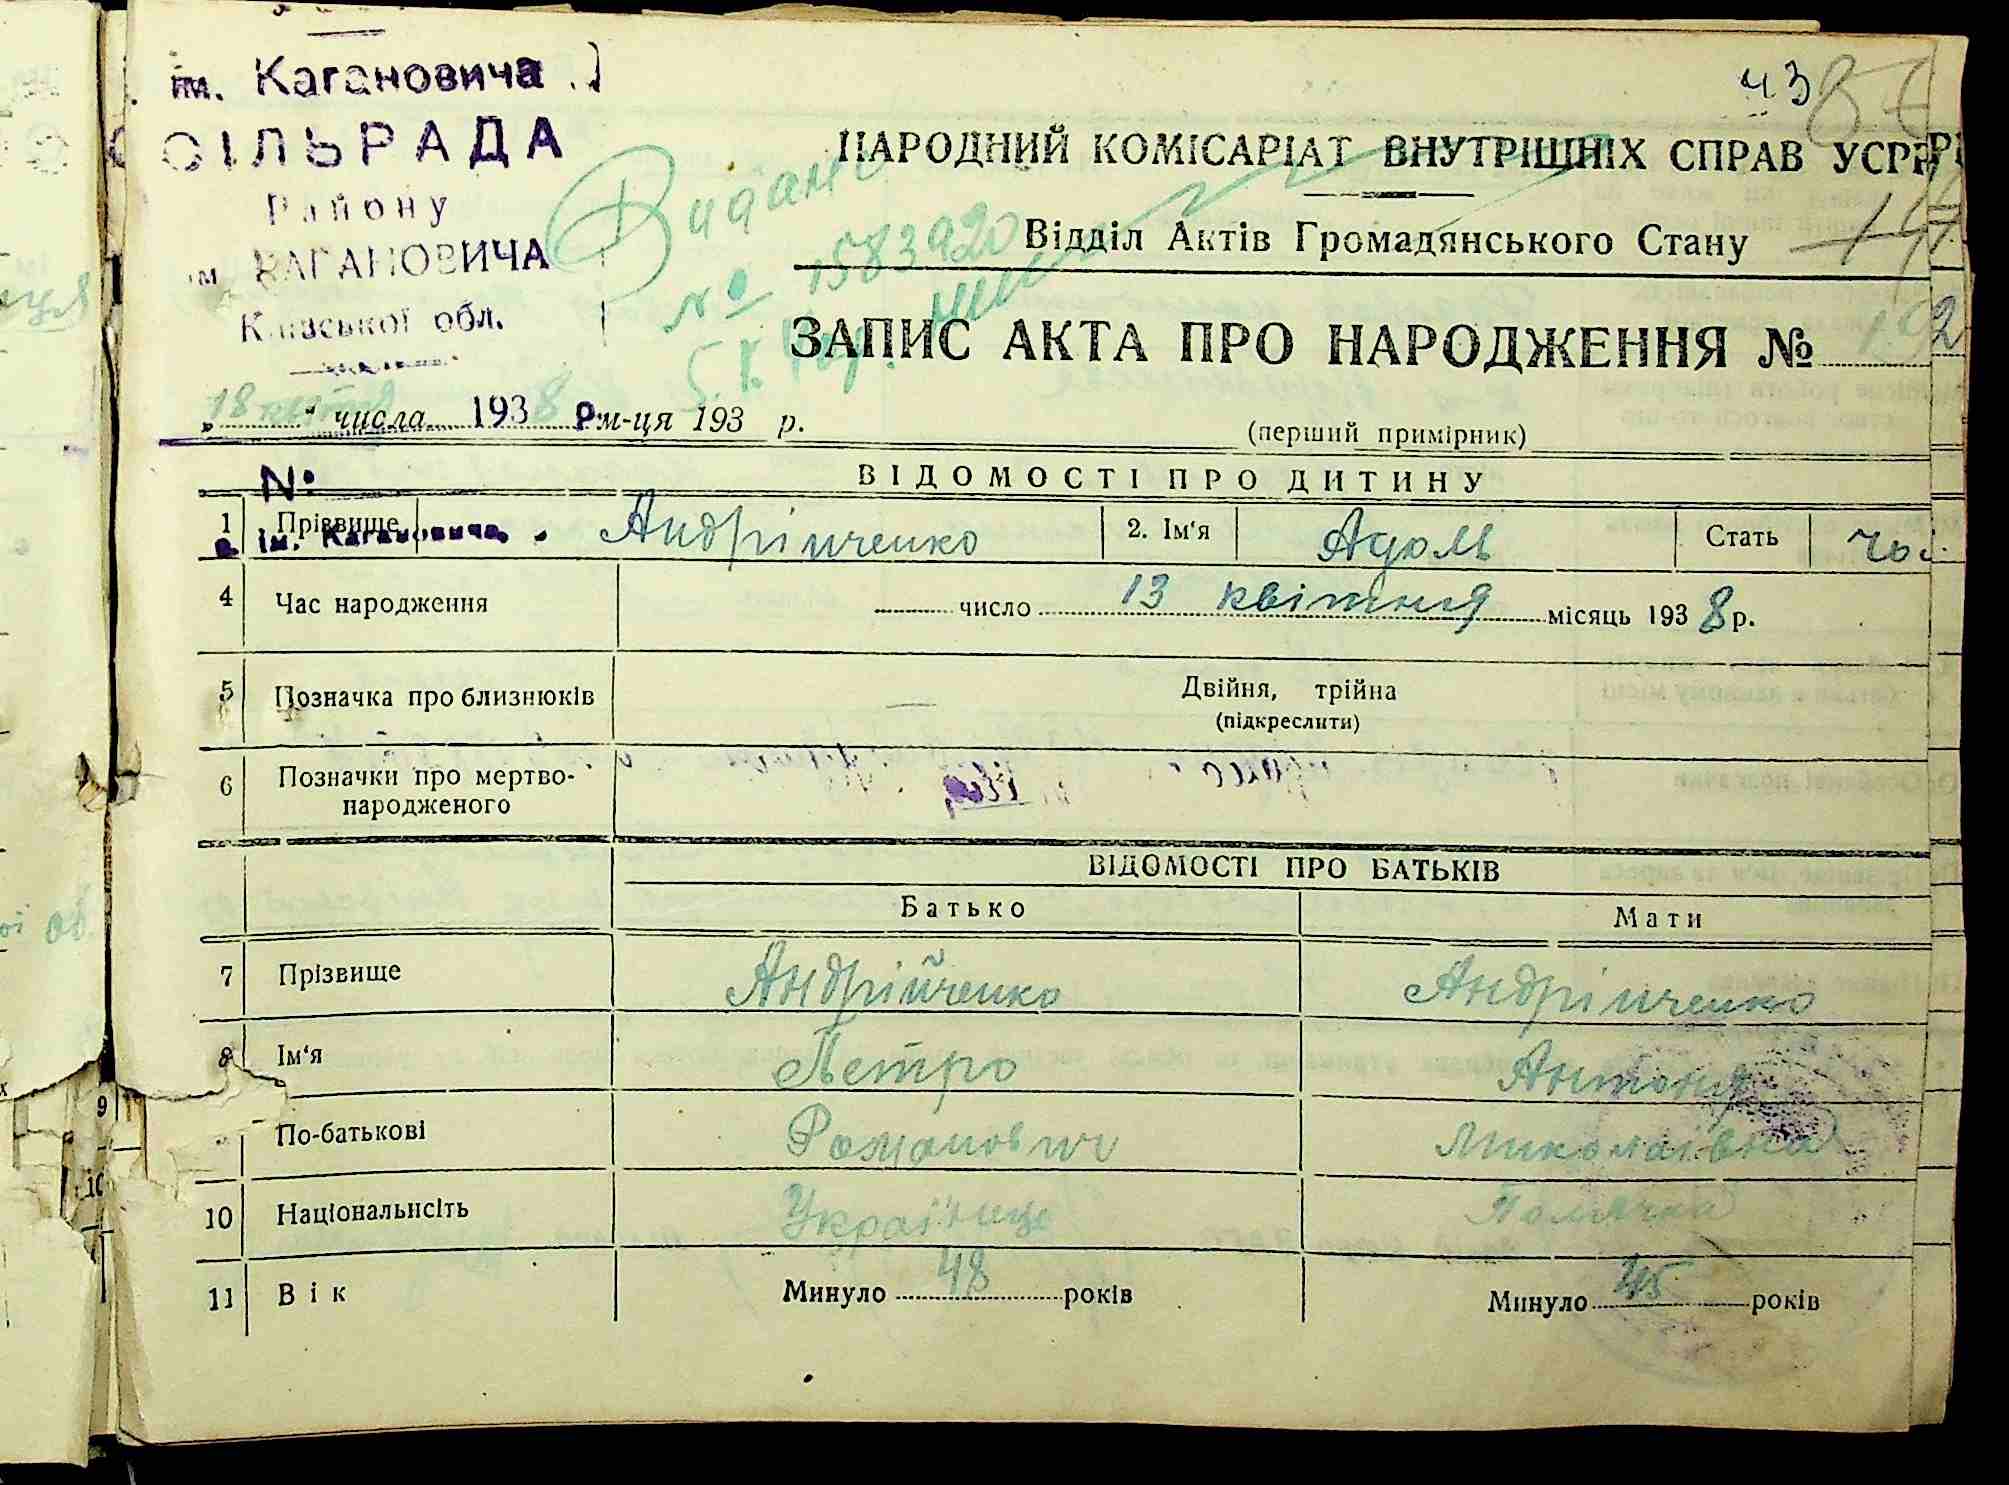 ім. Кагановича
43
СІЛЬРАДА
Району
ім. КАГАНОВИЧА
Київської обл.
Видано
№ 1583920
НАРОДНИЙ КОМІСАРІАТ ВНУТРІШНІХ СПРАВ УСРР
Відділ Актів Громадянського Стану
ЗАПИС АКТА ПРО НАРОДЖЕННЯ №
18 числа 1938 р. м-ця 193 р.
(перший примірник)
№
ВІДОМОСТІ ПРО ДИТИНУ
1 Прізвище Андріпченко 2. Ім'я Адоль Стать чол.
ім. Кагановича.
4 Час народження число 13 квітня місяць 1938 р.
5 Позначка про близнюків — Двійня, трійна
(підкреслити)
6 Позначки про мертво-
народженого
ВІДОМОСТІ ПРО БАТЬКІВ
Батько Мати
7 Прізвище Андрійченко Андріпченко
8 Ім'я Петро Антоня
9 По-батькові Романович Миколаївна
10 Національність Українець Полячка
11 Вік Минуло 48 років Минуло 45 років